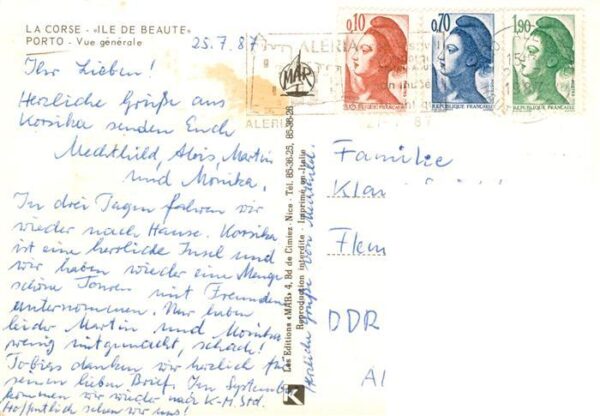 LA CORSE - «ILE DE BEAUTE»
PORTO - Vue générale
25.7.87
Ihr Lieben!
Herzliche Grüße aus
Korsika senden Euch
Mechthild, Alois, Martin
und Monika.
In drei Tagen fahren wir
wieder nach Hause. Korsika
ist eine herrliche Insel und
wir haben wieder eine Menge
schöne Touren mit Freunden
unternommen. Nur haben
leider Martin und Monika
wenig mitgemacht, schade!
Tobias danken wir herzlich für
seinen lieben Brief. Im September
kommen wir wieder nach K-M. Std.
Hoffentlich sehen wir uns!
MAR
Les Editions «MAR» 4, Bd de Cimiez - Nice - Tél. 85-36-25, 85-36-26
Reproduction interdite - Imprimé en Italie
Herzliche Grüße von Mechthild.
ALERIA
ALERIA
87
0,10
REPUBLIQUE FRANÇAISE
0,70
REPUBLIQUE FRANÇAISE
1,90
REPUBLIQUE FRANÇAISE
Familie
Kla
Flem
DDR
A